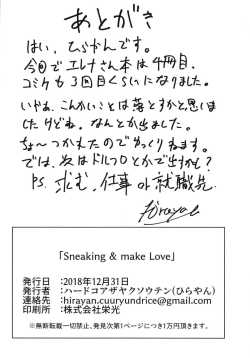 あとがき
はい、ひらやんです。
今回でエレナさん本は4冊目、
コミケも3回目くらいになりました。
いやね、こんかいことは落とすかと思いま
したけどね、なんとか出ました。
ちょ〜つかれたのでゆっくりねます。
では、次はドルフロとかで出すかも?
P.S. 求む、仕事 or 就職先
hirayan
「Sneaking & make Love」
発行日 :2018年12月31日
発行者 :ハードコアザヤクソウテン(ひらやん)
連絡先 :hirayan.cuuryundrice@gmail.com
印刷所 :株式会社栄光
※無断転載一切禁止、発見次第1ページにつき1万円頂きます。